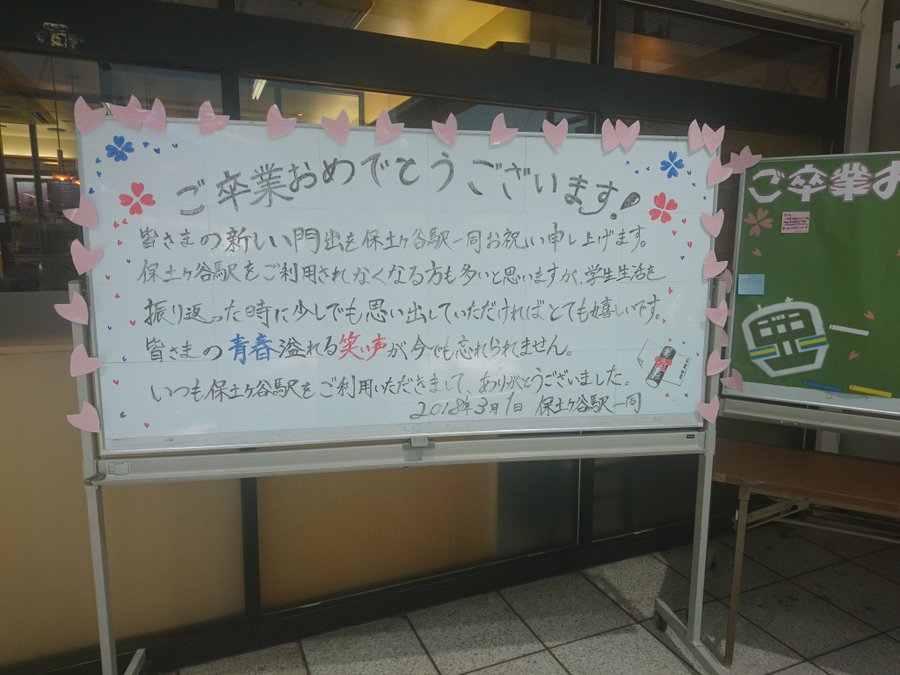 ご卒業おめでとうございます!
皆さまの新しい門出を保土ヶ谷駅一同お祝い申し上げます。
保土ヶ谷駅をご利用されなくなる方も多いと思いますが、学生生活を
振り返った時に少しでも思い出していただければとても嬉しいです。
皆さまの青春溢れる笑い声が今でも忘れられません。
いつも保土ヶ谷駅をご利用いただきまして、ありがとうございました。
2018年3月1日 保土ヶ谷駅一同
ご卒業お